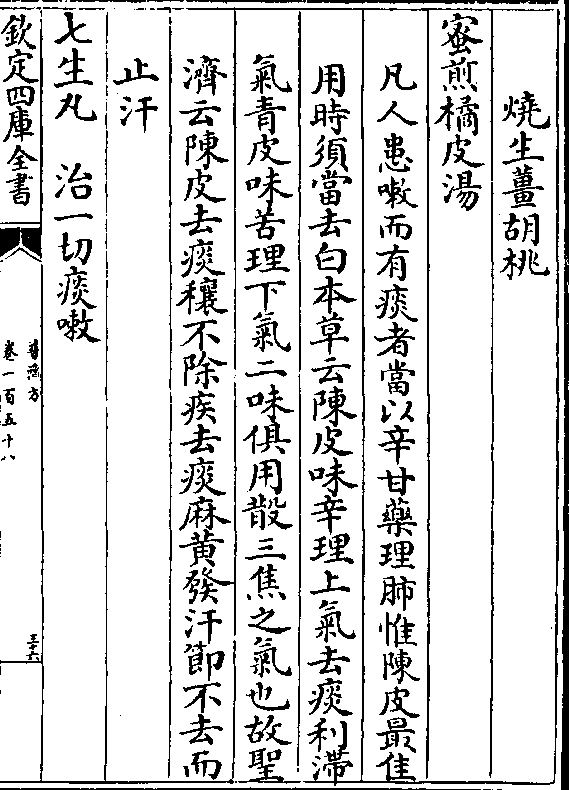 燒生薑胡桃
蜜煎橘皮湯
凡人患嗽而有痰者當以辛甘藥理肺惟陳皮最佳
用時須當去白本草云陳皮味辛理上氣去痰利滯
氣青皮味苦理下氣二味俱用散三焦之氣也故聖
濟云陳皮去痰穰不除疾去痰麻黃發汗節不去而
止汗
七生丸　治一切痰嗽
欽定四庫全書
普濟方
卷一百五十八
三十六